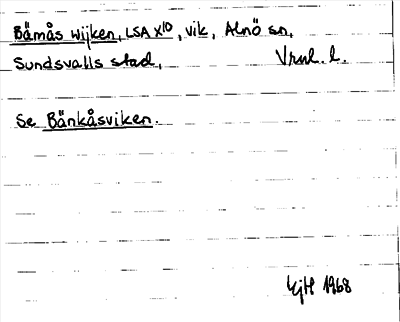 Bämås wijken, LSA X10, vik, Alnö sn,
Sundsvalls stad, Vrnl. l.
Se Bänkåsviken.
EjH 1968